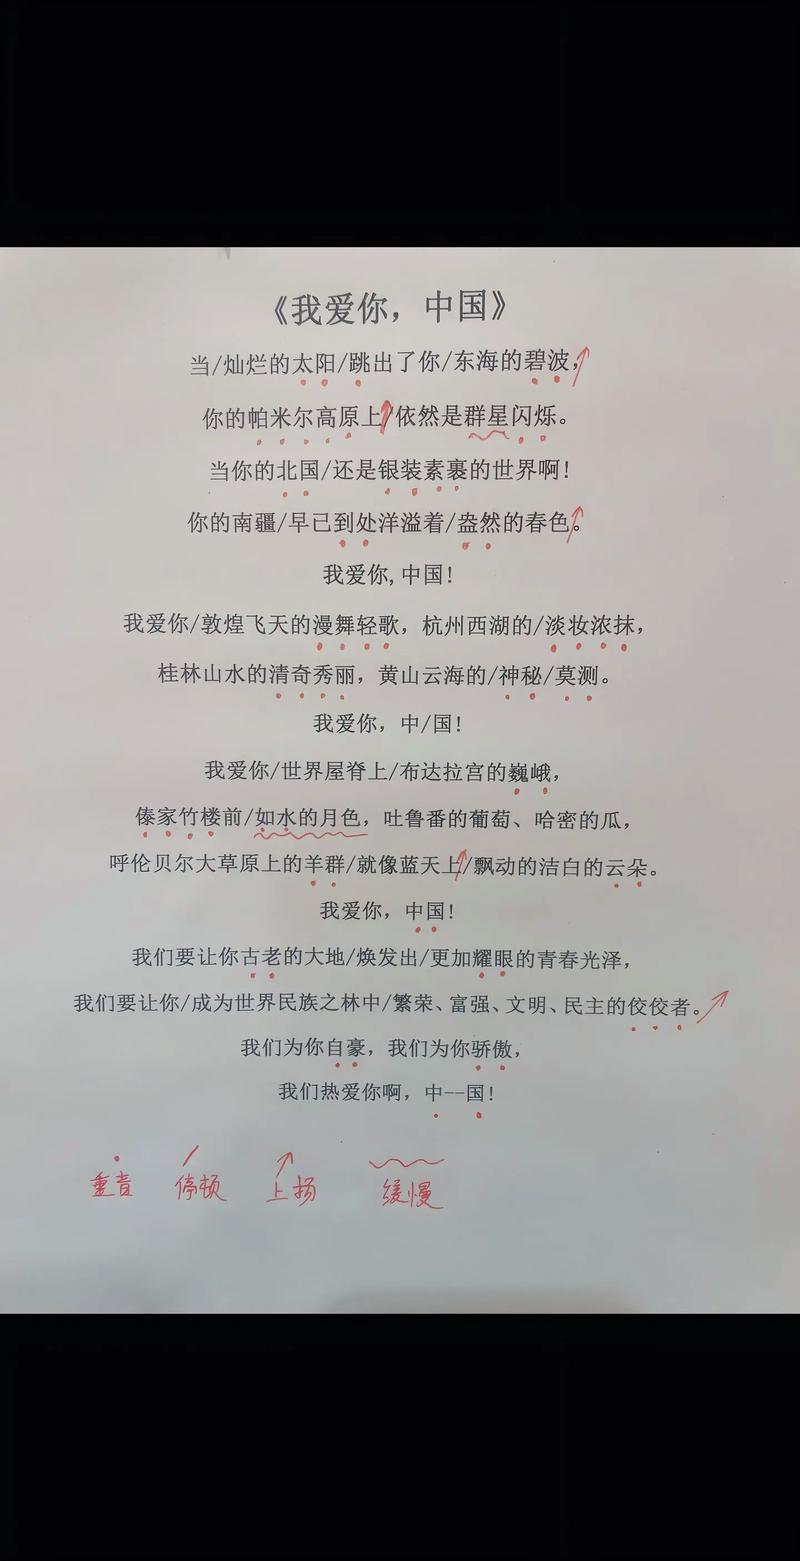 《我爱你，中国》
当/灿烂的太阳/跳出了你/东海的碧波，
你的帕米尔高原上/依然是群星闪烁。
当你的北国/还是银装素裹的世界啊！
你的南疆/早已到处洋溢着/盎然的春色。
我爱你,中国！
我爱你/敦煌飞天的漫舞轻歌，杭州西湖的/淡妆浓抹，
桂林山水的清奇秀丽，黄山云海的/神秘/莫测。
我爱你，中/国！
我爱你/世界屋脊上/布达拉宫的巍峨，
傣家竹楼前/如水的月色，吐鲁番的葡萄、哈密的瓜，
呼伦贝尔大草原上的羊群/就像蓝天上/飘动的洁白的云朵。
我爱你，中国！
我们要让你古老的大地/焕发出/更加耀眼的青春光泽，
我们要让你/成为世界民族之林中/繁荣、富强、文明、民主的佼佼者。
我们为你自豪，我们为你骄傲，
我们热爱你啊，中--国！
重音 停顿 上扬 缓慢